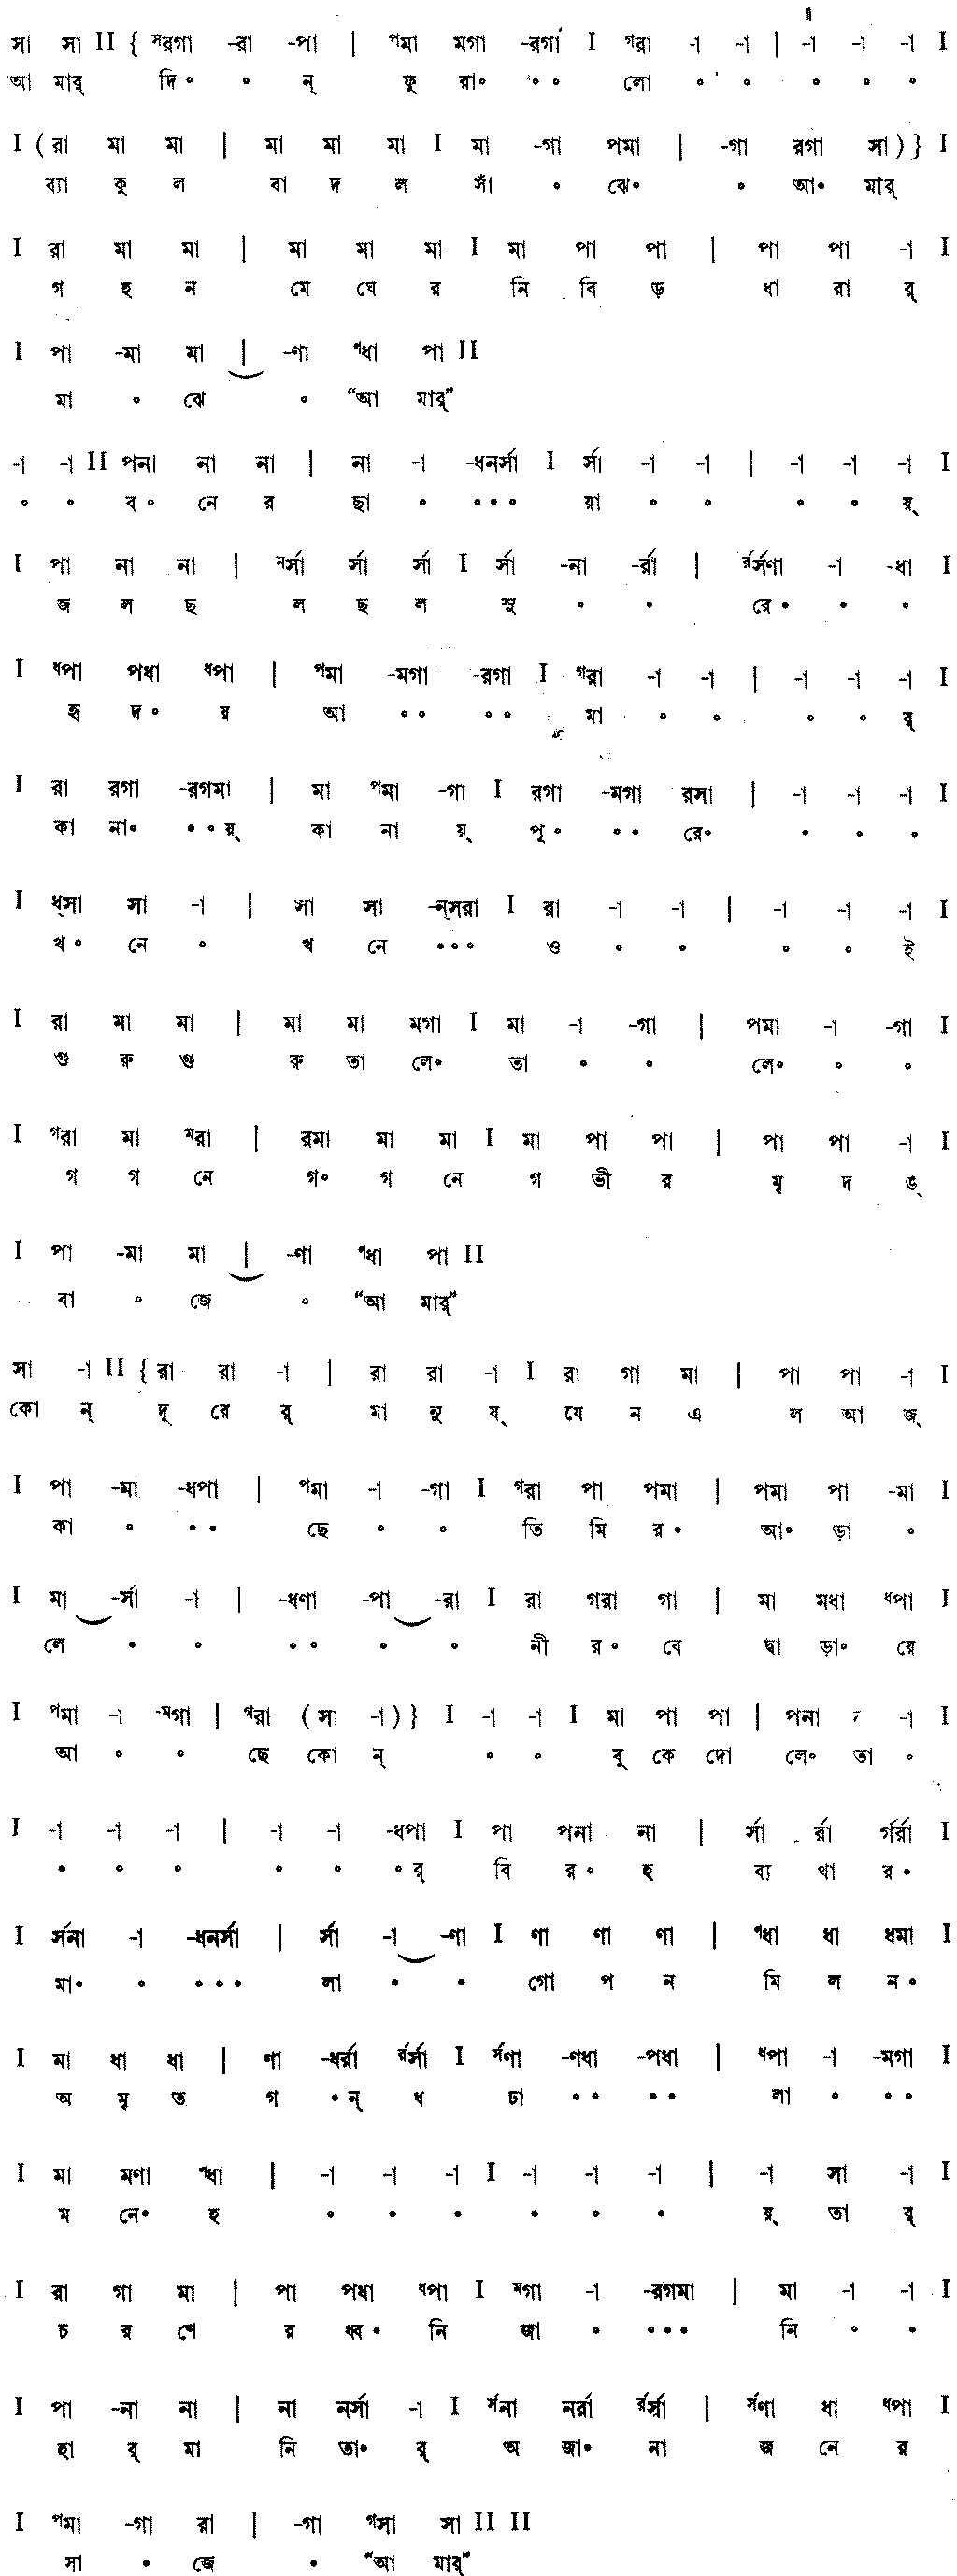 সা সা II { ᔆরগা -রা -পা | ᵖমা মগা -রগা I ᵍরা -া -া | -া -া -া I
আ মার্ দি॰ ॰ ন্ ফু রা॰ ॰॰ লো ॰ ॰ ॰ ॰ ॰
I (রা মা মা | মা মা মা I মা -গা পমা | -গা রগা সা)} I
ব্যা কু ল বা দ ল সাঁ ॰ ঝে॰ ॰ আ॰ মার্
I রা মা মা | মা মা মা I মা পা পা | পা পা -া I
গ হ ন মে ঘে র নি বি ড় ধা রার্ র্
I পা -মা মা | -ণা ণধা পা II
মা ॰ ঝে ॰ “আ মার্”
-া -া II পনা না না | না -া -ধনর্সা I র্সা -া -া | -া -া -া I
॰ ॰ ব॰ নে র ছা ॰ ॰॰॰ য়া ॰ ॰ ॰ ॰ য়্
I পা না না | নর্সা র্সা র্সা I র্সা -না -র্রা | র্রর্সণা -া -ধা I
জ ল ছ ল ছ ল সু ॰ ॰ রে॰ ॰ ॰
I ধপা পধা ধপা | পমা -মগা -রগা I গরা -া -া | -া -া -া I
হৃ দ॰ য় আ ॰॰ ॰॰ মা ॰ ॰ ॰ ॰ র্
I রা রগা -রগমা | মা পমা -গা I রগা -মগা রসা | -া -া -া I
কা না॰ ॰॰য়্ কা না য়্ পূ॰ ॰॰ রে॰ ॰ ॰ ॰
I ধ্সা সা -া | সা সা -ন্সরা I রা -া -া | -া -া -া I
খ॰ নে ॰ খ নে ॰॰॰ ও ॰ ॰ ॰ ॰ ই
I রা মা মা | মা মা মগা I মা -া -গা | পমা -া -গা I
গু রু গু রু তা লে॰ তা ॰ ॰ লে॰ ॰ ॰
I গরা মা মরা | রমা মা মা I মা পা পা | পা পা -া I
গ গ নে গ॰ গ নে গ ভী র মৃ দ ঙ্
I পা -মা মা | -ণা ণধা পা II
বা ॰ জে ॰ “আ মার্”
সা -া II {রা রা -া | রা রা -া I রা গা মা | পা পা -া I
কো ন্ দূ রে র্ মা নু ষ্ যে ন এ ল আ জ্
I পা -মা -ধপা | পমা -া -গা I গরা পা পমা | পমা পা -মা I
কা ॰ ॰॰ ছে ॰ ॰ তি মি র॰ আ॰ ড়া ॰
I মা -র্সা -া | -ধণা -পা -রা I রা গরা গা | মা মধা ধপা I
লে ॰ ॰ ॰॰ ॰ ॰ নী র॰ বে দাঁ ড়া॰ য়ে
I পমা -া -মগা | গরা (সা -া)} I -া -া I মা পা পা | পনা -া I
আ ॰ ॰ ছে কো ন্ ॰ ॰ বু কে দো লে॰ তা ॰
I -া -া -া | -া -া -ধপা I পা পনা না | র্সা র্রা র্গর্রা I
॰ ॰ ॰ ॰ ॰ ॰র্ বি র॰ হ ব্য থা র॰
I র্সনা -া -ধনর্সা | র্সা -া -ণা I ণা ণা ণা | ণধা ধা ধমা I
মা॰ ॰ ॰॰॰ লা ॰ ॰ গো প ন মি ল ন॰
I মা ধা ধা | ণা -ধর্রা র্রর্সা I র্সণা -ণধা -পধা | ধপা -া -মগা I
অ মৃ ত গ ॰ন্ ধ ঢা ॰॰ ॰॰ লা ॰ ॰॰
I মা মণা ণধা | -া -া -া I -া -া -া | -া সা -া I
ম নে॰ হ ॰ ॰ ॰ ॰ ॰ ॰ য়্ তা র্
I রা গা মা | পা পধা ধপা I মগা -া -রগমা | মা -া -া I
চ র ণে র ধ্ব॰ নি জা ॰ ॰॰॰ নি ॰ ॰
I পা -না না | না নর্সা -া I র্সনা নর্রা র্রর্সা | র্সণা ধা ধপা I
হা র্ মা নি তা॰ র্ অ জা॰ না জ নে র
I পমা -গা রা | -গা গসা সা II II
সা ॰ জে ॰ “আ মার্”